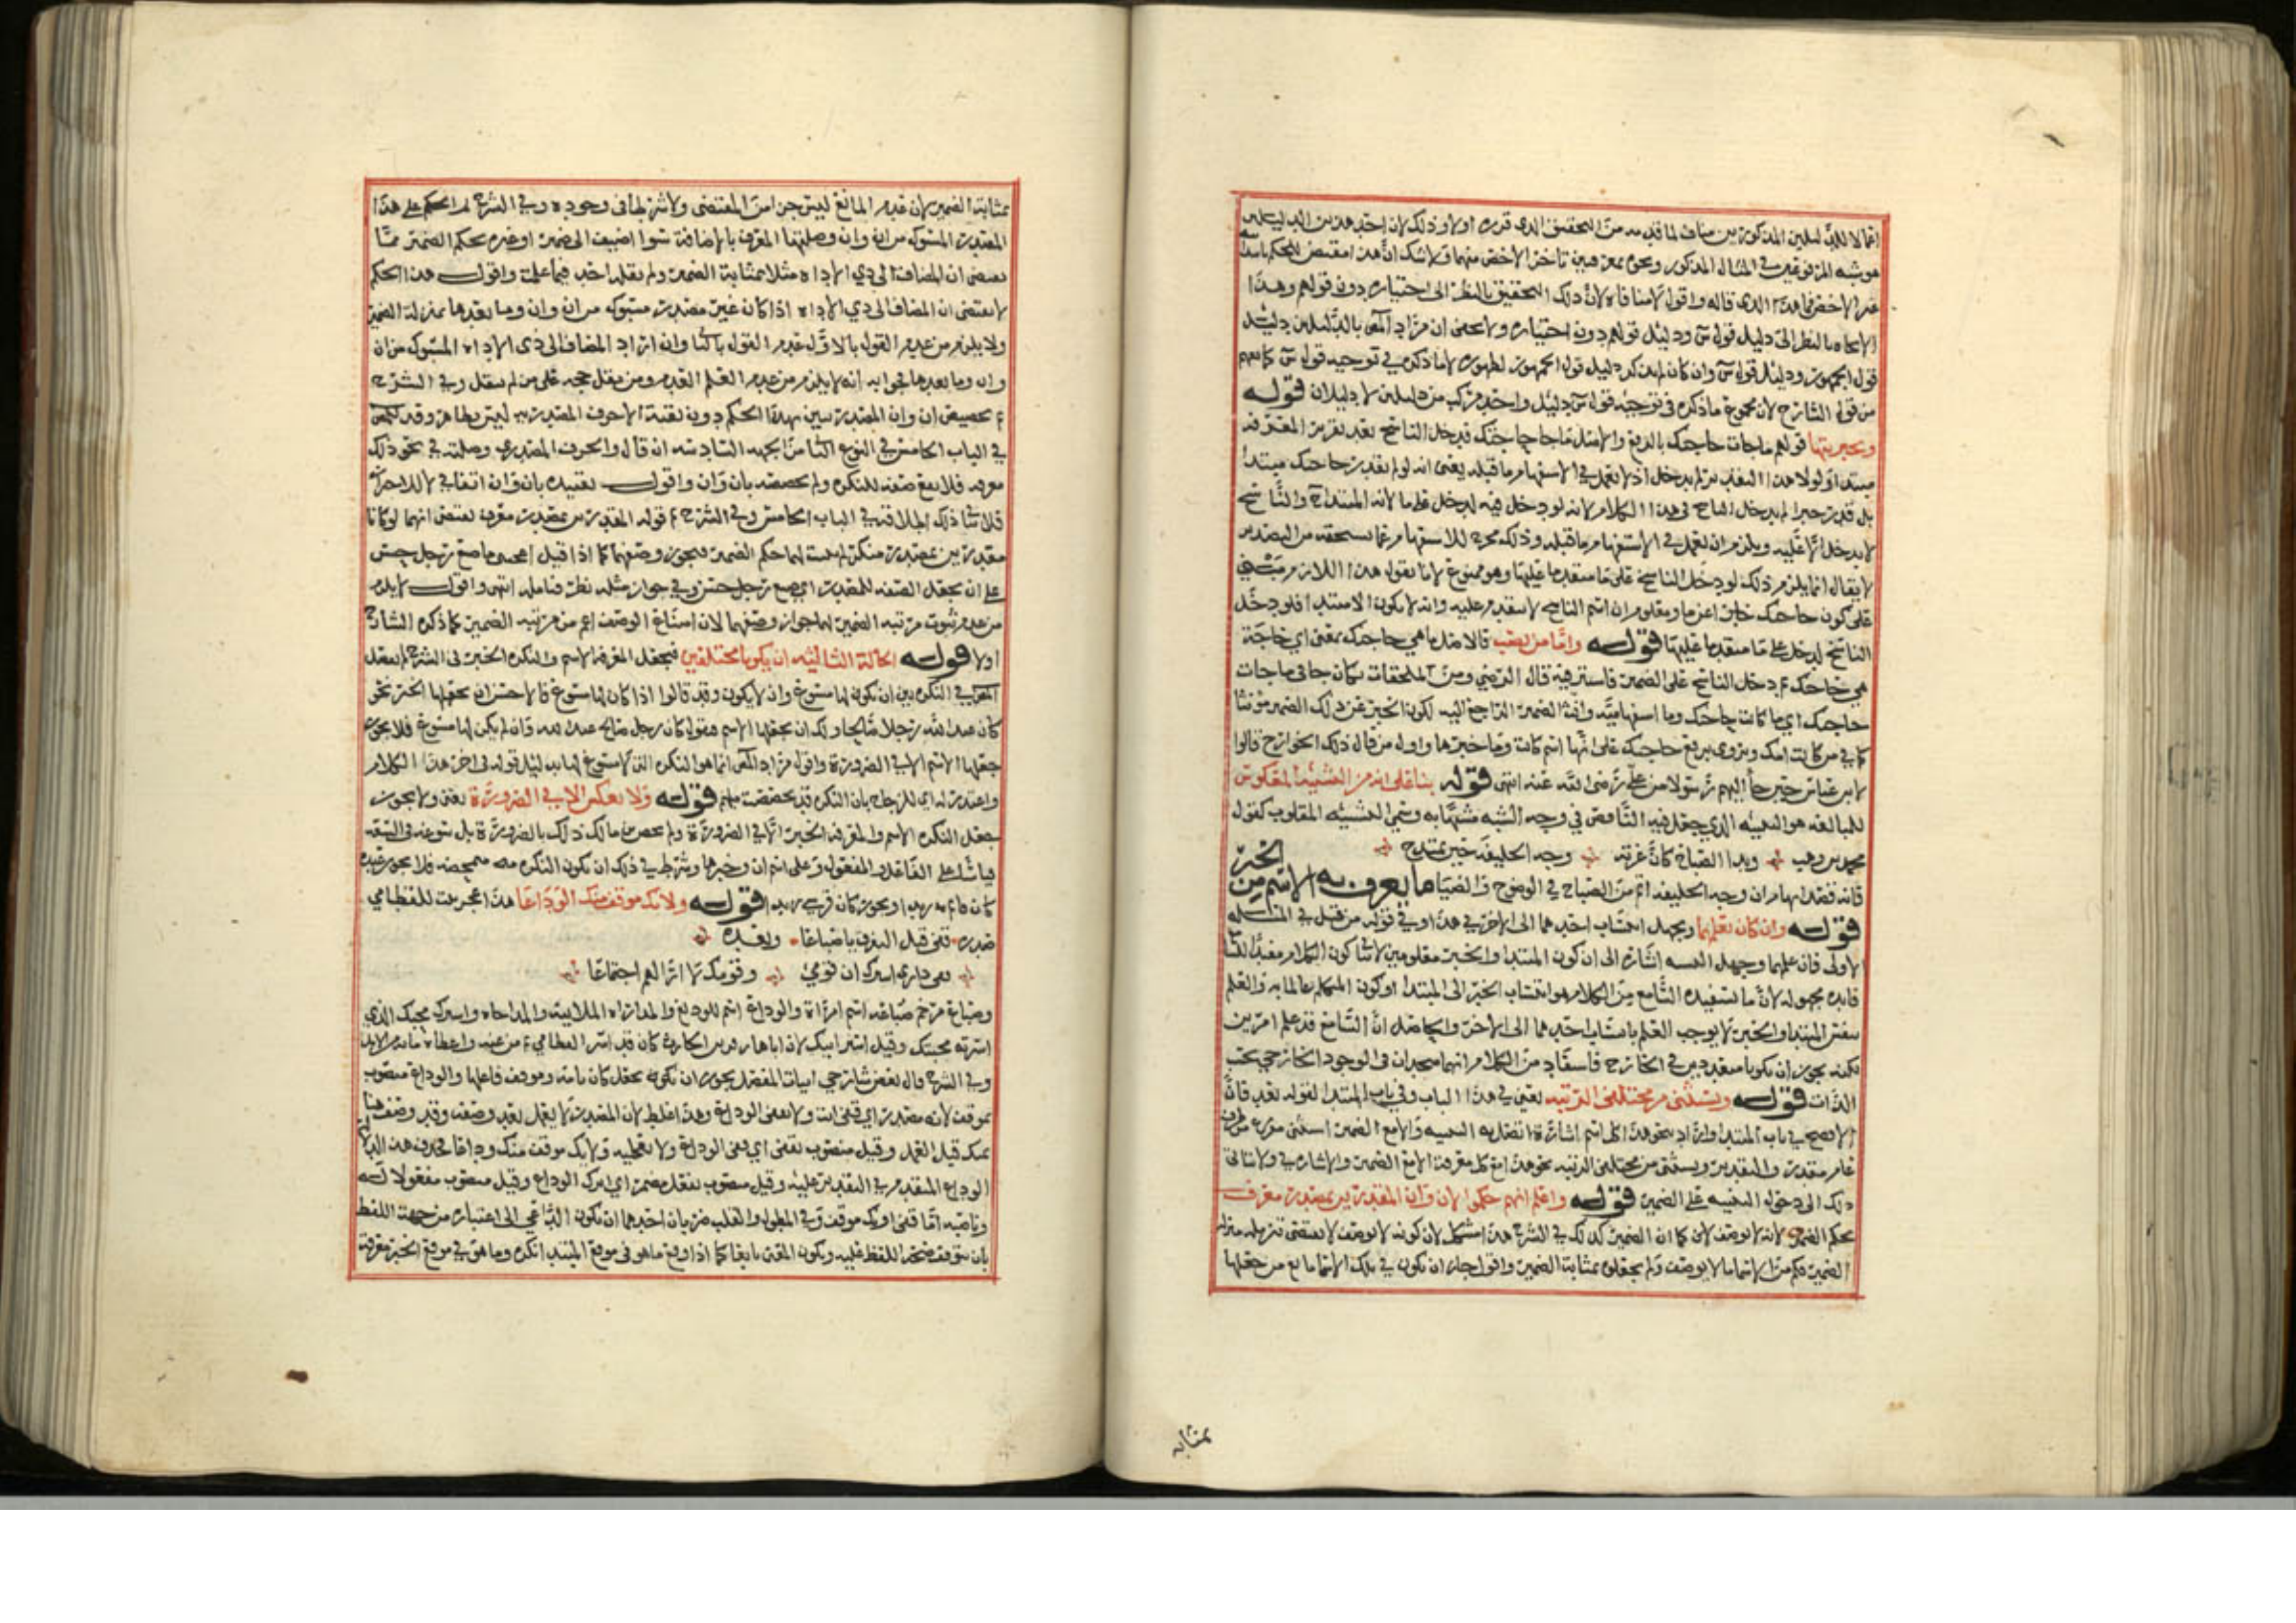 هو شبه المرفوعين في المثال المذكور ونحوه معرفين تاخر الاخص منهما ولا شك ان هذا مقتض للحكم بابتدا
غير الاخص فما هذا الذي قاله واقول لا منافاه لان ذلك التحقيق بالنظر الى اختياره دون قولهم وهذا
الايجاه بالنظر الى دليل قول س ودليل قولهم دون اختياره ولا يخفى ان مراد المص بالدليلين دليل
قول الجمهور ودليل قول س وان كان لم يذكر دليل قول الجمهور لظهوره لا ما ذكره في توجيه قول س كما يفهم
من قول الشارح لان مجموع ما ذكره في توجيه قول س دليل واحد مركب من دليلين لا دليلان قوله
قولهم ماجات حاجتك بالرفع والاصل ما حاجتك فدخل الناسخ بعد تقدير المعرفه
مبتدا ولولا هذا التقدير لم يدخل اذ لا يعمل في الاستفهام ما قبله يعنى انه لو لم يقدر حاجتك مبتدا
بل قدر خبرا لم يدخل الناسخ في هذا الكلام لانه لو دخل فيه لدخل على ما لانه المبتدا ح والناسخ
لا يدخل الا عليه ويلزم ان يعمل في الاستفهام ما قبله وذلك مخرج للاستفهام عما يستحقه من التصدير
لا يقال انما يلزم ذلك لو دخل الناسخ على ما متقدما عليها وهو ممنوع لانا نقول هذا اللازم مبني
على كون حاجتك خبرا عن ما ومعلوم ان اسم الناسخ لا يتقدم عليه وانه لا يكون الا مبتدا فلو دخل
الناسخ لدخل على ما متقدما عليها قوله واما من نصب فالاصل ما هي حاجتك بمعنى اي حاجة
هي حاجتك ثم دخل الناسخ على الضمير فاستتر فيه قال الرضي ومن الملحقات بكان جا في ماجات
حاجتك اي ما كانت حاجتك وما استفهاميه وانث الضمير الراجع اليه لكون الخبر عن ذلك الضمير مؤنثا
كما في من كانت امك ويروى برفع حاجتك على انها اسم كانت وما خبرها واول من قال ذلك الخوارج قالوا
لابن عباس حين جا اليهم رسولا من علي رضى الله عنه انتهى قوله بنا على انه من التشبيه المعكوس
للمبالغه هو التشبيه الذي يجعل فيه الناقص في وجه الشبه مشبها به وسمي التشبيه المقلوب كقول
محمد بن وهب وبدا الصباح كان غرته وجه الخليفه حين يمتدح
فانه قصد ايهام ان وجه الخليفه اتم من الصباح في الوضوح والضيا ما يعرف به الاسم من الخبر
قوله وان كان يعلمهما ويجهل انتساب احدهما الى الاخر في هذا وفي قوله من قبل في المسئله
الاولى فان علمهما وجهل النسبه اشاره الى ان كون المبتدا والخبر معلومين لا ينافي كون الكلام مفيدا للسامع
فايده مجهوله لان ما يستفيده السامع من الكلام هو انتساب الخبر الى المبتدا او كون المتكلم عالما به والعلم
بنفس المبتدا والخبر لا يوجب العلم بانتساب احدهما الى الاخر والحاصل ان السامع قد علم امرين
لكنه يجوز ان يكونا متعددين في الخارج فاستفاد من الكلام انهما متحدان في الوجود الخارجي بحسب
الذات قوله ويستثنى من مختلفى الرتبه يعني في هذا الباب وفي باب المبتدا لقوله بعد فان
الافصح في باب المبتدا
ذلك الى دخول التنبيه على الضمير قوله واعلم انهم حكموا لان وان المقدرتين بمصدر معرف
بحكم الضمير لانه لا يوصف لان كما ان الضمير كذلك في الشرح هذا مشكل لان كونه لا يوصف لا يقتضى تنزيله منزله
الضمير فكم من الاسما ما لا يوصف ولم يجعلوه بمثابة الضمير واقول جاز ان يكون في تلك الاسما مانع من جعلها
بمثابه
بمثابة الضمير لان عدم المانع ليس جزا من المقتضى ولا شرطا في وجوده وفي الشرح ثم الحكم على هذا
المصدر المسبوك من ان وان وصلتهما المعرف بالاضافة سوا اضيف الى ضمير او غيره بحكم الضمير مما
يقتضى ان المضاف الى ذي الاداه مثلا بمثابة الضمير ولم يقله احد فيما علمت واقول هذا الحكم
لا يقتضى ان المضاف الى ذي الاداه اذا كان غير مصدر مسبوك من ان وان وما بعدهما بمنزلة الضمير
ولا يلزم من عدم القول بالاول عدم القول بالثاني وان اراد المضاف الى ذى الاداه المسبوك من ان
وان وما بعدهما فجوابه انه لا يلزم من عدم العلم العدم ومن نقل حجه على من لم ينقل وفي الشرح
ثم تخصيص ان وان المصدريتين بهذا الحكم دون بقية الاحرف المصدريه ليس بظاهر وقد
في الباب الخامس في النوع الثامن من الجهه السادسه ان قال والحرف المصدري وصلته في نحو ذلك
معرفه فلا يقع صفه للنكره ولم يخصصه بان وان واقول تقييده بان وان اتفاقي لا للاحتراز
فلا ينافي ذلك اطلاقه في الباب الخامس وفي الشرح ثم قوله المقدرتين بمصدر معرف يقتضى انهما لو كانا
مقدرتين بمصدر منكر لم يثبت لهما حكم الضمير فيجوز وصفهما كما اذا قيل اعجبني ما صنع رجل حسن
على ان يجعل الصفه للمصدر اي صنع رجل حسن وفي جواز مثله نظر فتامله انتهى واقول لا يلزم
من عدم ثبوت مرتبه الضمير لهما جواز وصفهما لان امتناع الوصف اعم من مرتبه الضمير كما ذكره الشارح
اولا قوله الحالة الثانيه ان يكونا مختلفين فيجعل المعرفه الاسم والنكره الخبر فى الشرح لم يفصل
المص في النكره بين ان يكون لها مسوغ وان لا يكون وقد قالوا اذا كان لها مسوغ فالاحسن ان تجعلها الخبر نحو
كان عبد الله رجلا صالحا ولك ان تجعلها الاسم فتقول كان رجل صالح عبد الله وان لم يكن لها مسوغ فلا يجوز
جعلها الاسم الا في الضرورة واقول مراد المص انما هو النكره التي لا مسوغ لها بدليل قوله فى اخر هذا الكلام
واعتذر له اي للزجاج بان النكره قد تخصصت بلهم قوله ولا يعكس الا في الضرورة يعنى ولا يجوز
جعل النكره الاسم والمعرفه الخبر الا في الضرورة ولم يخص بن مالك ذلك بالضرورة بل سوغه فى السعه
قياسا على الفاعل والمفعول وعلى اسم ان وخبرها وشرط في ذلك ان تكون النكره غير صفه محضه فلا يجوز عنده
كان قائم زيدا ويجوز كان قرشي زيدا قوله ولا يك موقف منك الوداعا هذا عجز بيت للقطامي
صدره قفى قبل التفرق يا ضباعا وبعده
قفى فادى اسيرك ان قومي وقومك لا ارى لهم اجتماعا
وضباع مرخم ضباعه اسم امراة والوداع اسم للتوديع
اسرته محبتك وقيل اسير ابيك لان اباها زفر بن الحارث كان قد اسر القطامي ثم من عليه واعطاه مائه من الابل
وفي الشرح قال بعض شارحي ابيات المفصل يجوز ان تكون تجعل كان تامه وموقف فاعلها والوداع منصوب
بموقف لانه مصدر اي قفى انت ولا تعنى الوداع وهذا غلط لان المصدر لا يعمل بعد وصفه وقد وصف هنا
بمنك قبل العمل وقيل منصوب بقفى اي دعى الوداع ولا تفعليه ولا يك موقف منك وداعا فحذف هذا لدلالة
الوداع المتقدم في التقدير عليه وقيل منصوب بفعل مضمر اي اترك الوداع وقيل منصوب مفعولا له
وناصبه اما قفى او يك موقف وفي المطول والقلب ضربان احدهما ان يكون الداعي الى اعتباره من جهة اللفظ
بان يتوقف صحة اللفظ عليه ويكون المعنى تابعا كما اذا وقع ما هو فى موقع المبتدا نكره وما هو في موقع الخبر معرفة